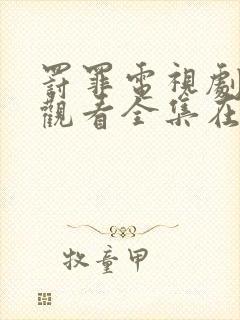 罸罪電視劇
觀看全集在
牧童甲